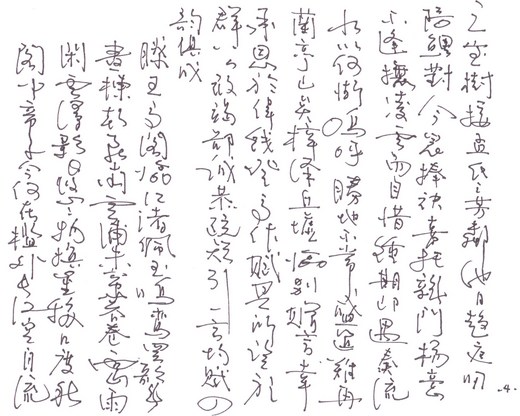 之宝樹接孟氏之芳鄰他日趋庭叨
陪鯉對今晨捧袂喜托龍門楊意
不逢撫凌雲而自惜鍾期即遇奏流
水以何慚嗚呼勝地不常盛筵難再
蘭亭已矣梓澤丘墟臨別贈言幸
承恩於偉餞登高作賦是所望於
群公敢竭鄙誠恭疏短引一言均賦四
韻俱成
滕王高閣臨江渚佩玉鳴鸞罷歌舞
畫棟朝飛南浦雲朱簾暮卷西山雨
閑雲潭影日悠悠物換星移几度秋
閣中帝子今何在檻外長江空自流
-4-